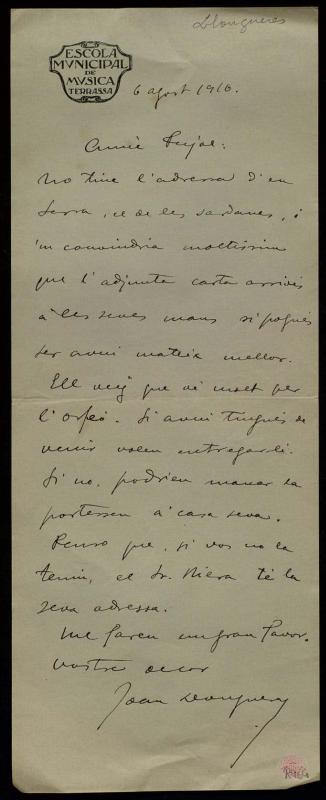 Llongueres
ESCOLA
MVNICIPAL
DE
MVSICA
TERRASSA
6 agost 1916.
Amic Pujol:
No tinc l'adressa d'en
Serra, el de les sardanes, i
'm convindria moltissim
que l'adjunta carta arrivés
à les seves mans si pogués
ser avui mateix mellor.
Ell veig que vé molt per
l'Orfeó. Si avui tingués de
venir volen entregarli.
Si no, podrien manar la
portessen á casa seva.
Penso que, si vos no la
teniu, el Sr. Riera té la
seva adressa.
Me fareu un gran favor.
Vostre de cor
Joan Llongueres